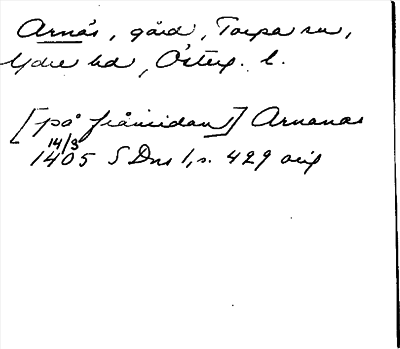 Arnäs, gård, Torpa sn,
Ydre hd, Österg. l.
[på frånsidan] Arnanas
14/3
1405 SDns 1, s. 429 orig